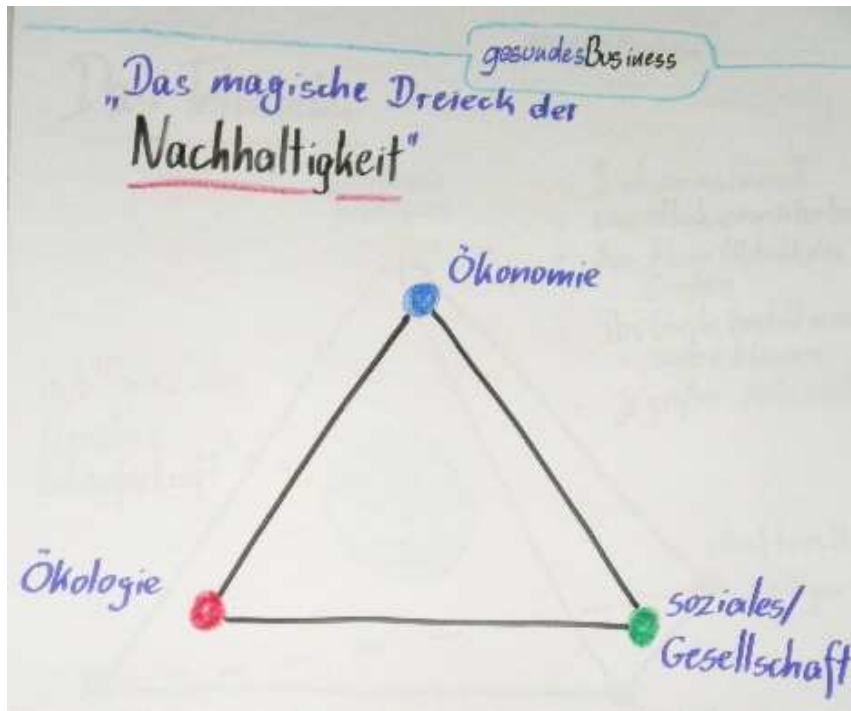 gesundesBusiness
„Das magische Dreieck der
Nachhaltigkeit"
Ökonomie
Ökologie
soziales/
Gesellschaft